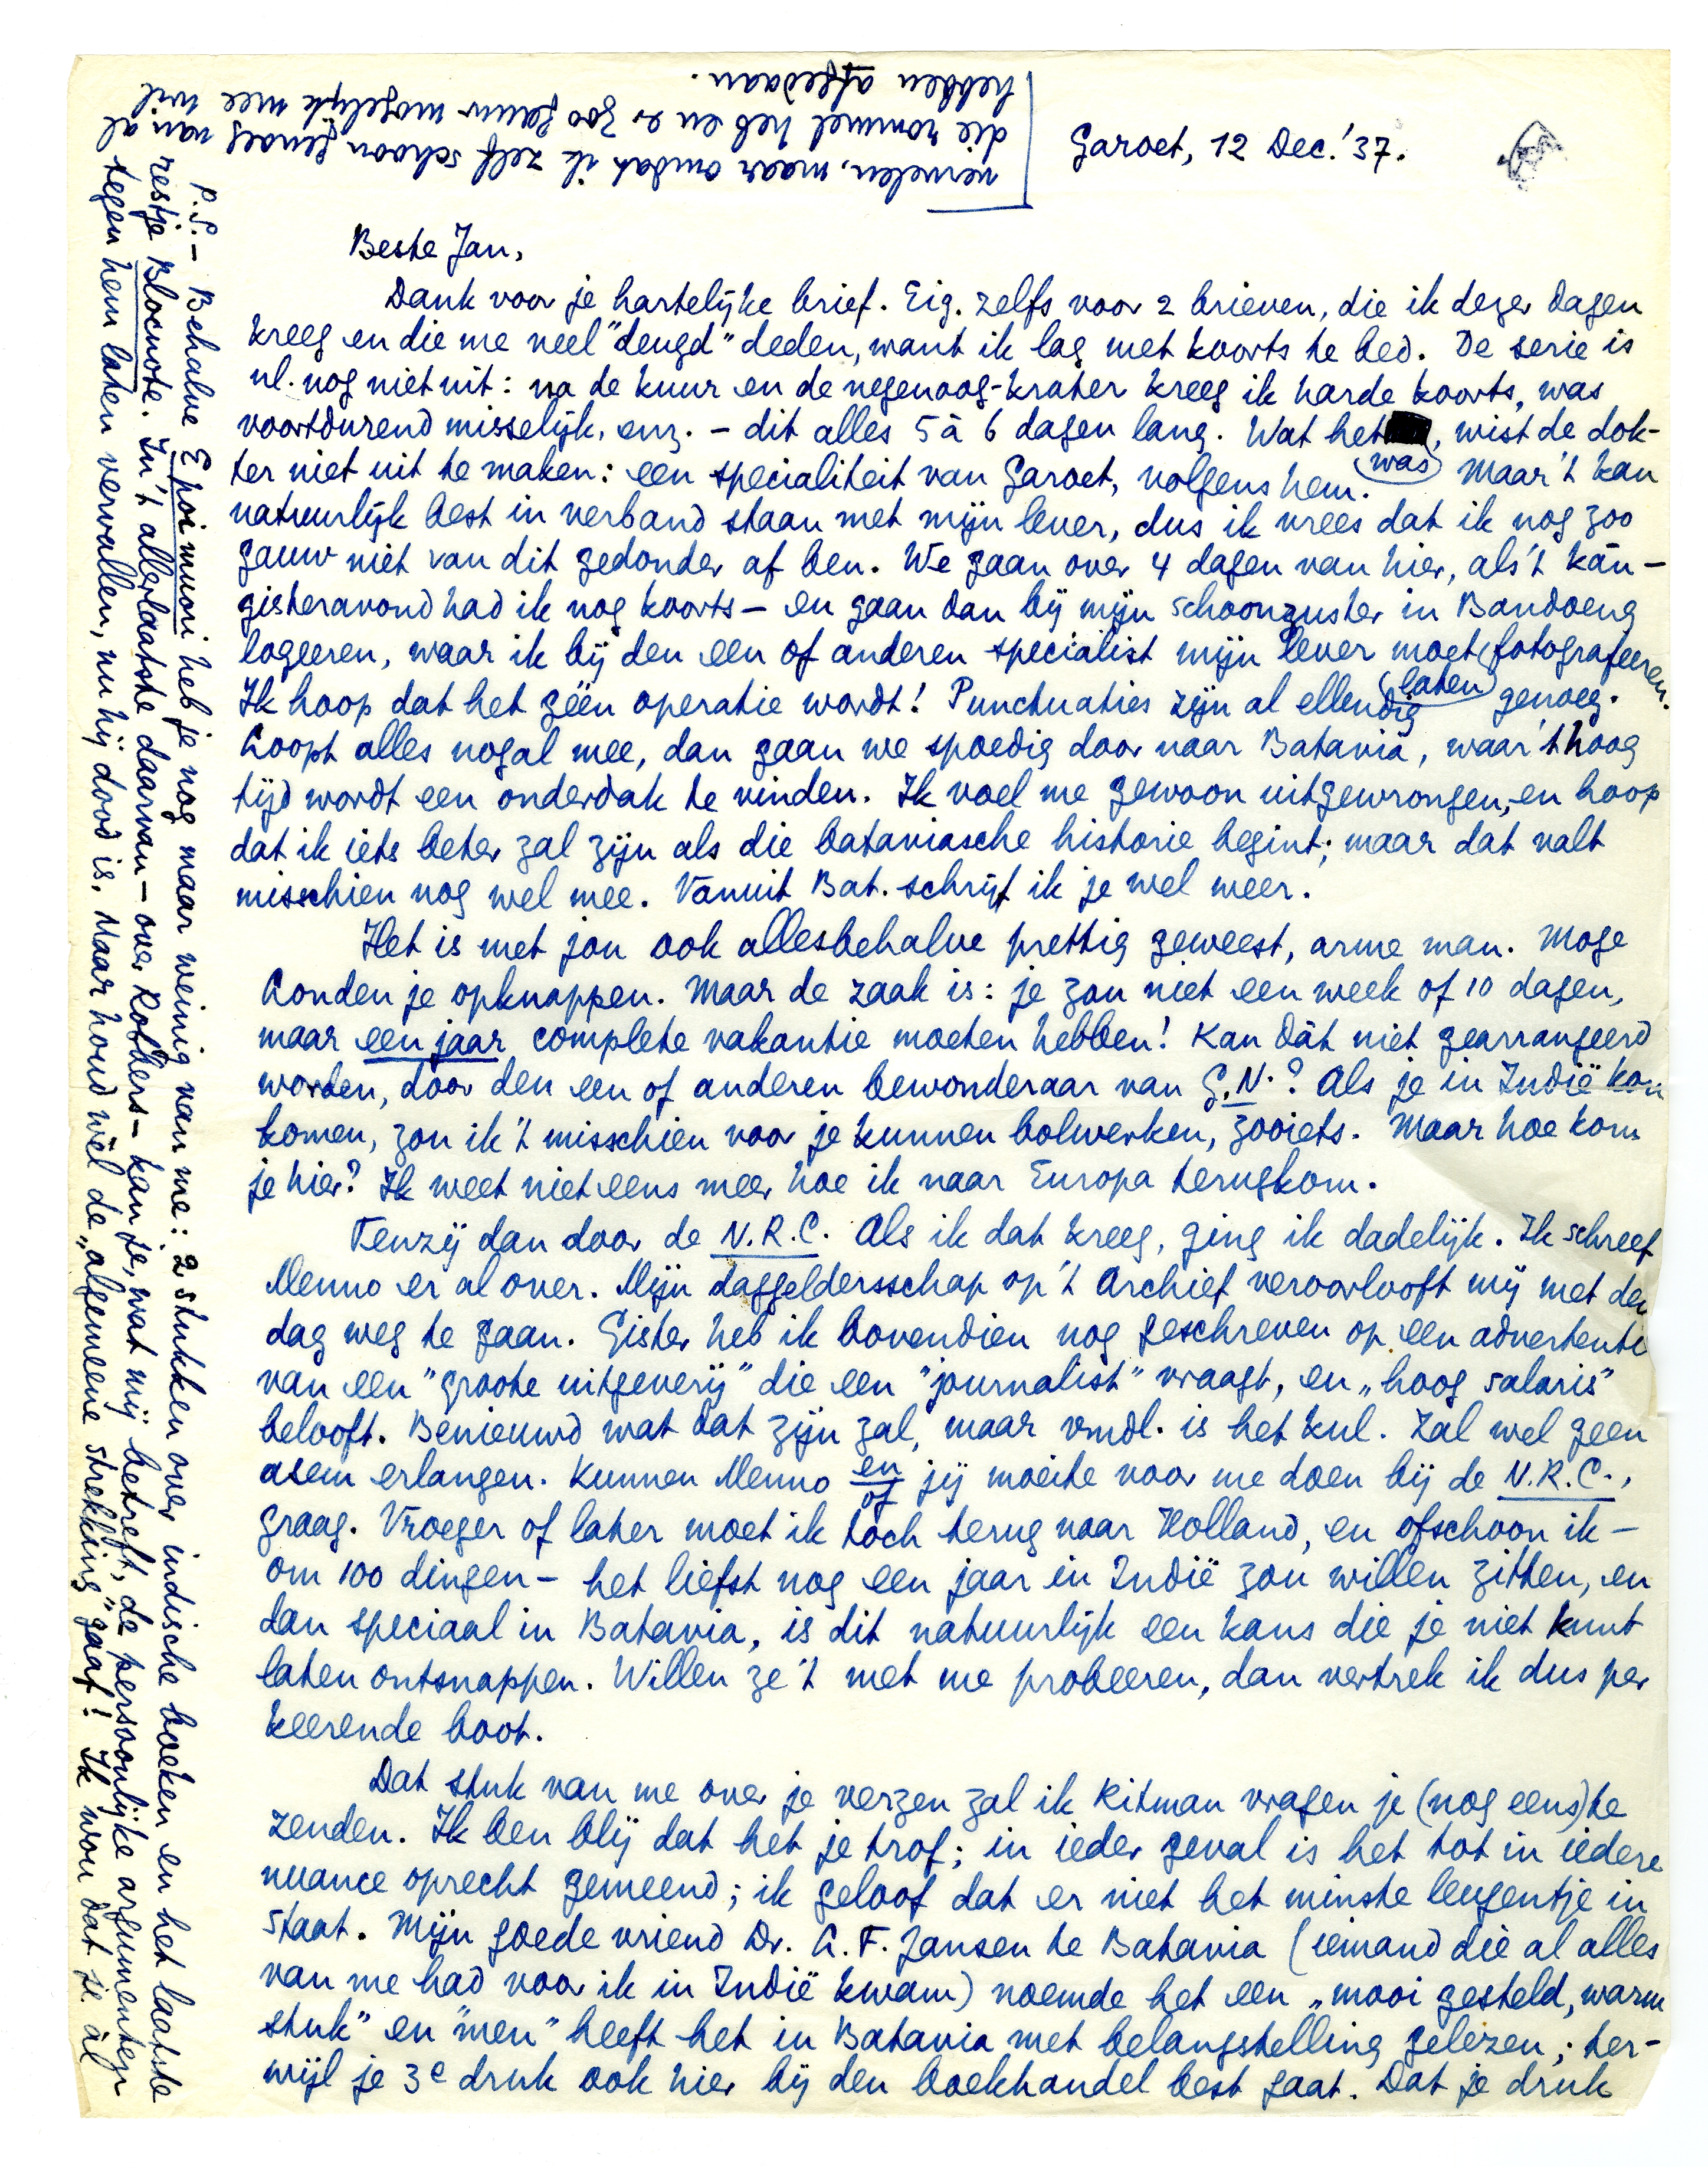 Garoet, 12 Dec. '37.
Beste Jan,
Dank voor je hartelijke brief. Eig. zelfs voor 2 brieven, die ik dezer dagen
kreeg en die me veel "deugd" deden, want ik lag met koorts te bed. De serie is
nl. nog niet uit: na de kuur en de negenoog-krater kreeg ik harde koorts, was
voortdurend misselijk, enz. – dit alles 5 à 6 dagen lang. Wat het was, wist de dok-
ter niet uit te maken: een specialiteit van Garoet, volgens hem. Maar 't kan
natuurlijk best in verband staan met mijn lever, dus ik vrees dat ik nog zoo
gauw niet van dit gedonder af ben. We gaan over 4 dagen van hier, als 't kàn –
gisteravond had ik nog koorts – en gaan dan bij mijn schoonzuster in Bandoeng
logeeren, waar ik bij den een of anderen specialist mijn lever moet laten fotografeeren.
Ik hoop dat het géén operatie wordt! Punctuaties zijn al ellendig genoeg.
Loopt alles nogal mee, dan gaan we spoedig door naar Batavia, waar 't hoog
tijd wordt een onderdak te vinden. Ik voel me gewoon uitgewrongen, en hoop
dat ik iets beter zal zijn als die bataviasche historie begint; maar dat valt
misschien nog wel mee. Vanuit Bat. schrijf ik je wel weer.
Het is met jou ook allesbehalve prettig geweest, arme man. Moge
Londen je opknappen. Maar de zaak is: je zou niet een week of 10 dagen,
maar een jaar complete vakantie moeten hebben! Kan dàt niet gearrangeerd
worden, door den een of anderen bewonderaar van G.N.? Als je in Indië kon
komen, zou ik 't misschien voor je kunnen bolwerken, zooiets. Maar hoe kom
je hier? Ik weet niet eens meer hoe ik naar Europa terugkom.
Tenzij dan door de N.R.C. Als ik dat kreeg, ging ik dadelijk. Ik schreef
Menno er al over. Mijn daggeldersschap op 't Archief veroorlooft mij met den
dag weg te gaan. Gister heb ik bovendien nog geschreven op een advertentie
van een "groote uitgeverij" die een "journalist" vraagt, en „hoog salaris"
belooft. Benieuwd wat dat zijn zal, maar vmdl. is het kul. Zal wel geen
asem erlangen. Kunnen Menno en/of jij moeite voor me doen bij de N.R.C.,
graag. Vroeger of later moet ik tòch terug naar Holland, en ofschoon ik –
om 100 dingen – het liefst nog een jaar in Indië zou willen zitten, en
dan speciaal in Batavia, is dit natuurlijk een kans die je niet kunt
laten ontsnappen. Willen ze 't met me probeeren, dan vertrek ik dus per
keerende boot.
Dat stuk van me over je verzen zal ik Ritman vragen je (nog eens) te
zenden. Ik ben blij dat het je trof; in ieder geval is het tot in iedere
nuance oprecht gemeend; ik geloof dat er niet het minste leugentje in
staat. Mijn goede vriend Dr. L. F. Jansen te Batavia (iemand die al alles
van me had voor ik in Indië kwam) noemde het een „mooi gesteld, warm
stuk" en "men" heeft het in Batavia met belangstelling gelezen; ter-
wijl je 3e druk ook hier bij den boekhandel best gaat. Dat je druk
P.S. – Behalve E poi muori heb je nog maar weinig van me: 2 stukken over indische boeken en het laatste
restje Blocnote. In 't allerlaatste daarvan – over Robbers – kan je, wat mij betreft, de persoonlijke argumenten
tegen hem laten vervallen, nu hij dood is. Maar houd wèl de „algemeene strekking" gaaf! Ik wou dat je àl
vervelen, maar omdat ik zelf schoon genoeg van al
die rommel heb en er zoo gauw mogelijk mee wil
hebben afgedaan.